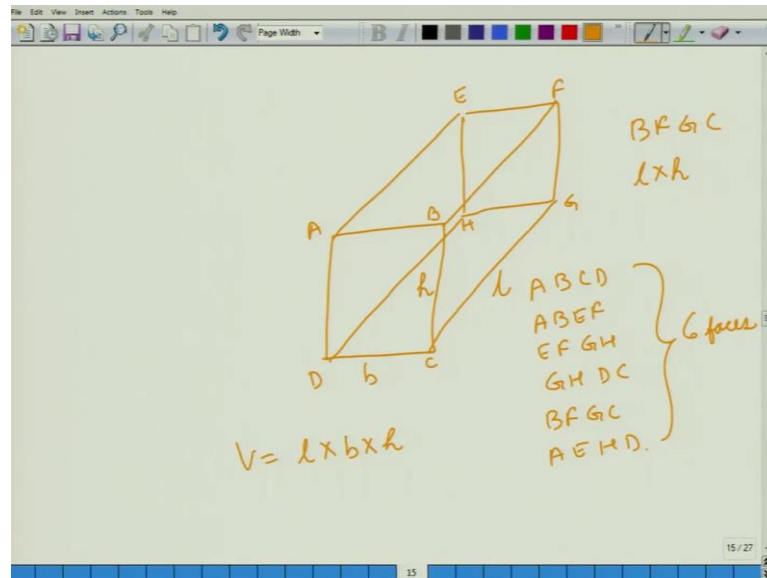 File Edit View Insert Actions Tools Help
Page Width
B I
E F
BFGC
l×h
A B H G
h l
D b C
ABCD
ABEF
EFGH
GHDC
BFGC
AEHD.
6 faces
V= l×b×h
15/27
15